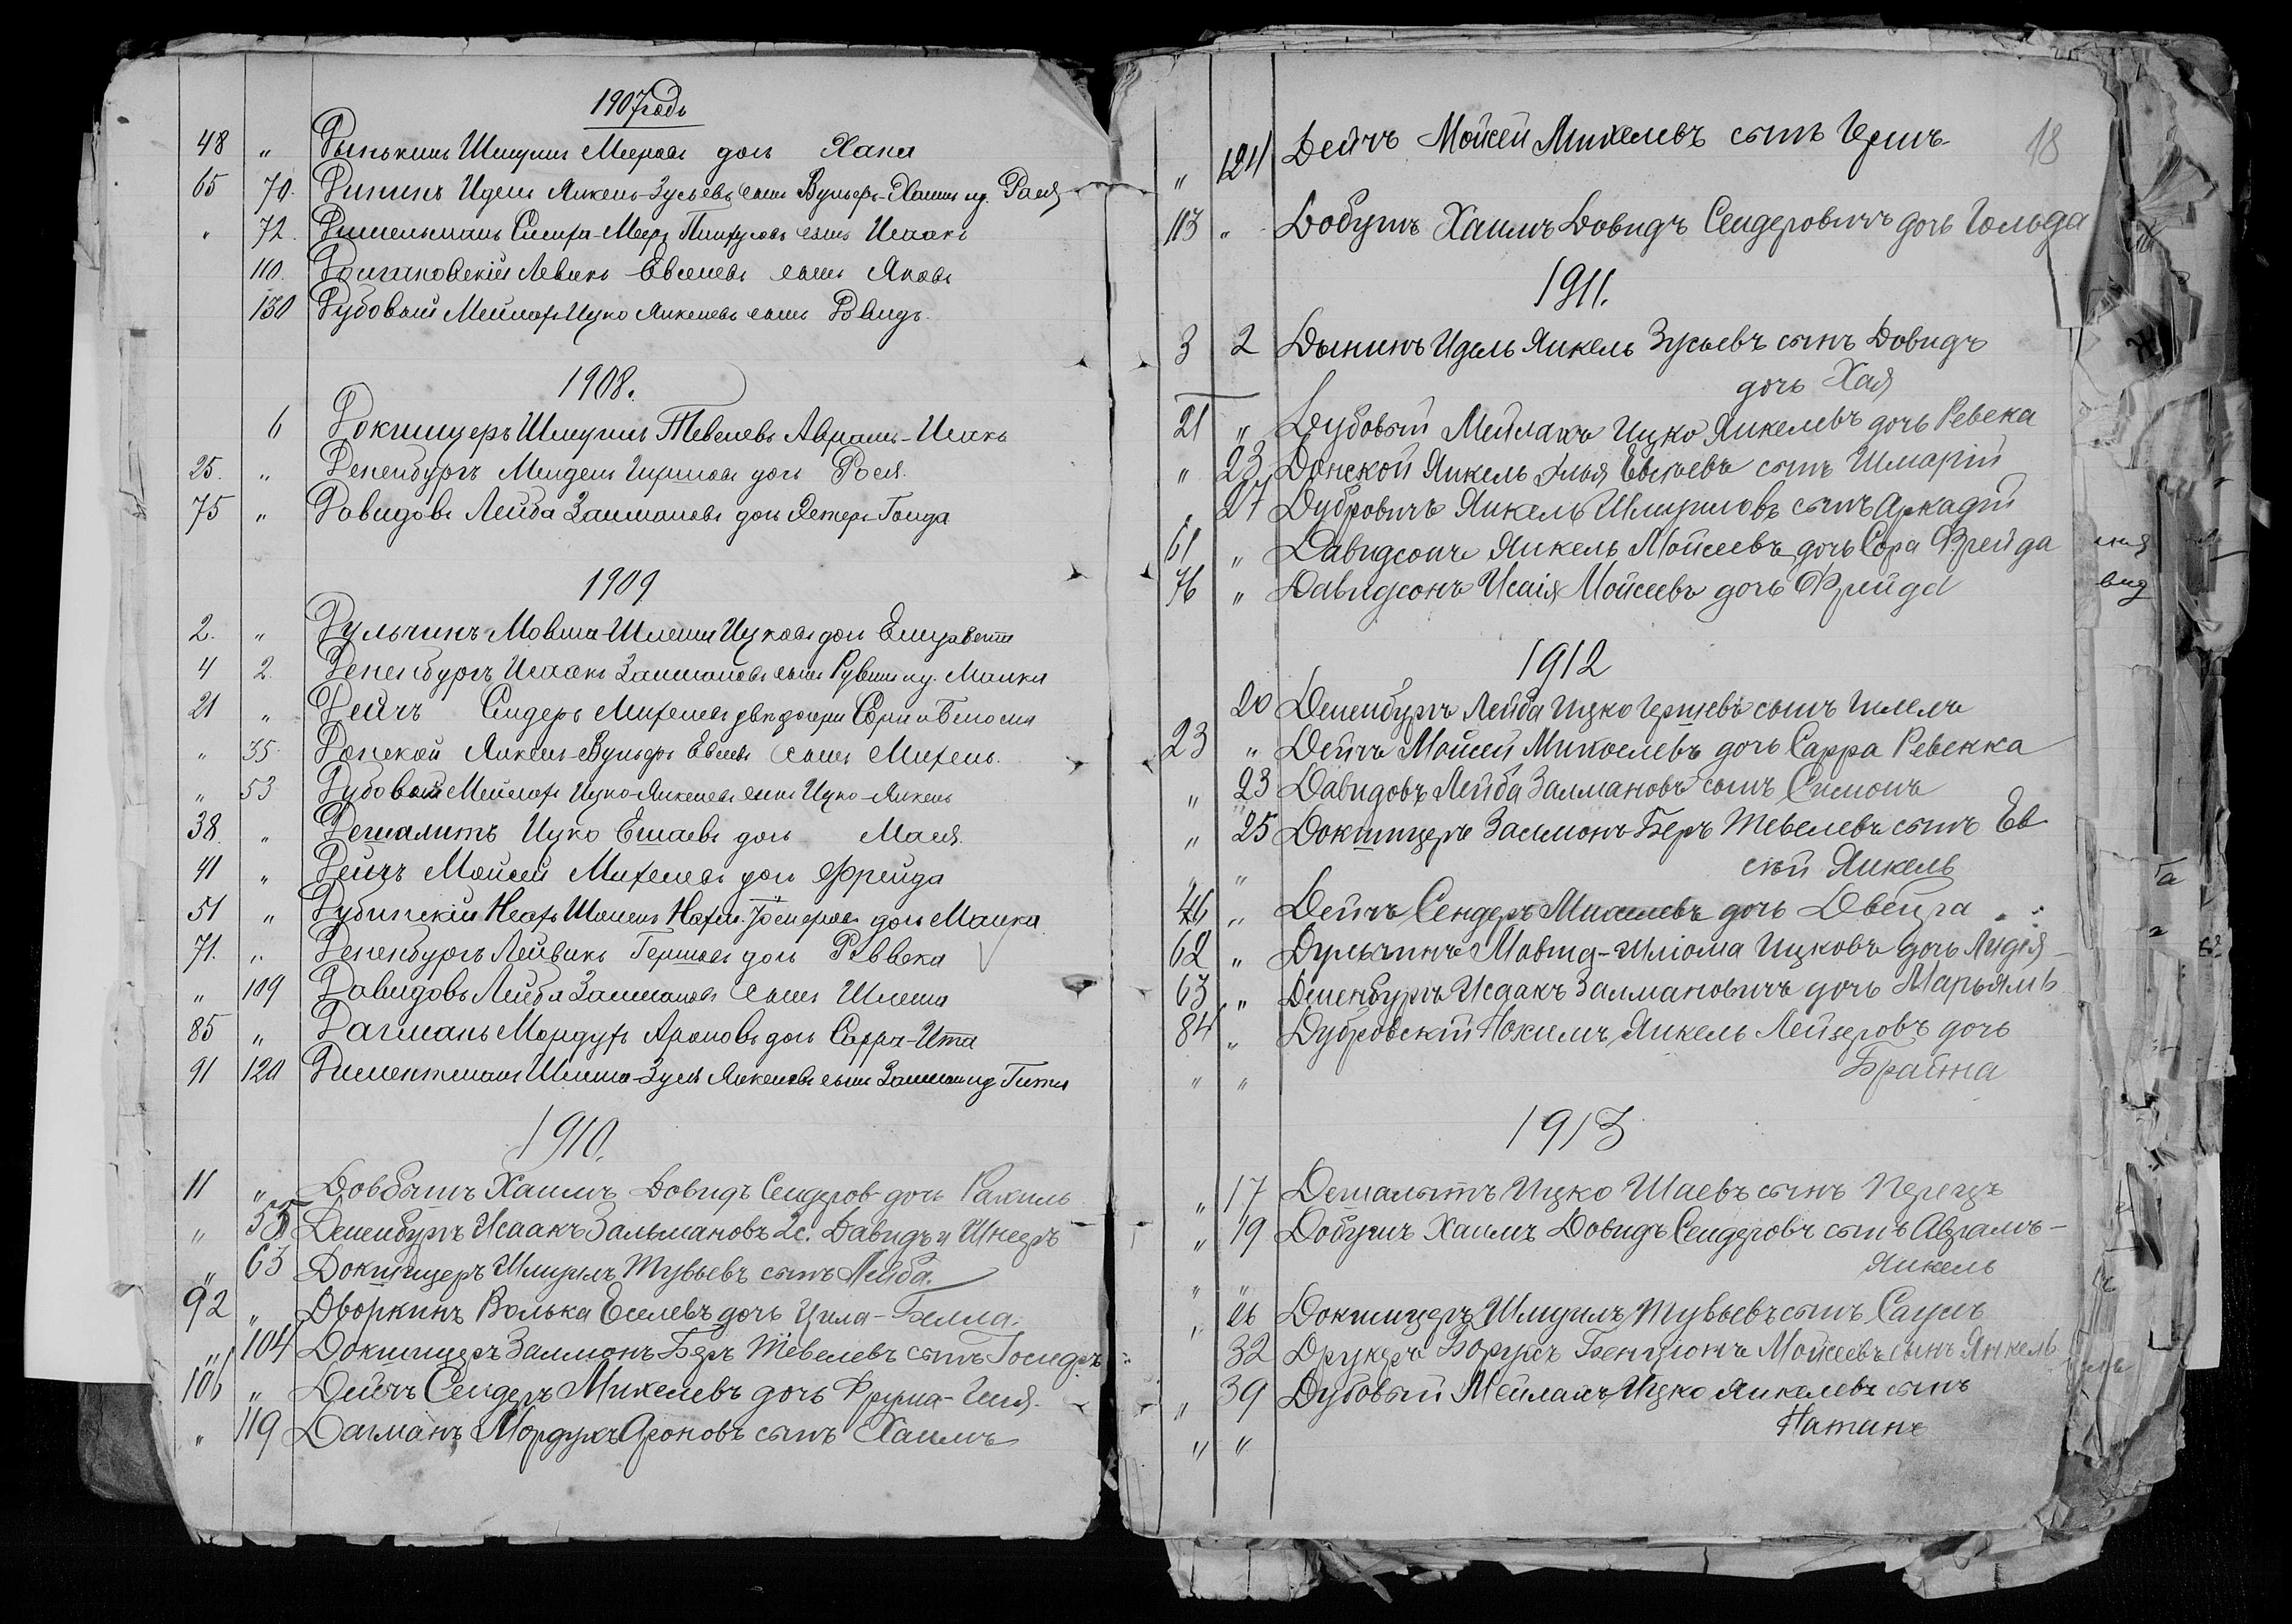 1907 годъ
48 „ Дынькинъ Шмуилъ Мееровъ дочь Хана
65 70. Дининъ Идель Янкель-Зусьевъ сынъ Вульфъ-Хаимъ ид. Рася
„ 72. Симха-Мееръ Пинхусовъ сынъ Исаакъ
110. Левикъ Евселевъ сынъ Яковъ
130 Дубовый Мейлахъ Ицко Янкелевъ сынъ Давидъ
1908.
6 Докшицеръ Шмуилъ Тевелевъ Абрамъ-Исакъ
25. „ Дененбургъ Мендель Гиршовъ дочь Рося.
75 „ Давидовъ Лейба Залмановъ дочь Эстеръ-Голда
1909
2. „ Дульчинъ Мовша-Шлема Ицковъ дочь Елизавета
4 2. Дененбургъ Исаакъ Залмановъ сынъ Рувинъ ид. Малка
21 „ Дейчъ Сендеръ Михелевъ двѣ дочери Сори и
„ 35 Донской Янкель-Вульфъ Евсеевъ сынъ Михель.
„ 53 Дубовый Мейлахъ Ицко-Янкелевъ сынъ Ицко-Янкель
38. „ Дешалитъ Ицко Ешаевъ дочь Мася.
41 „ Дейчъ Мойсей Михелевъ дочь Фрейда
51 „ Дубинскій дочь Малка.
71. „ Дененбургъ Лейвикъ Гершовъ дочь Реввека
„ 109 Давидовъ Лейба Залмановъ сынъ Шлема
85 „ Дагманъ Мордухъ Ароновъ дочь Сарра-Ита
91 120 Диментманъ Шлема-Зусь Янкелевъ сынъ Залманъ ид. Гитя
1910.
11 „ Довбышъ Хаимъ Довидъ Сендеров дочь Рахиль
„ 55 Дененбургъ Исаакъ Зальмановъ 2с. Давидъ и Шнееръ
„ 63 Докшицеръ Шмуилъ Тувьевъ сынъ Лейба.
92 „ Дворкинъ Волька Еселевъ дочь Цила-Белла.
„ 104 Докшицеръ Залмонъ-Беръ Тевелевъ сынъ
106 „ Дейчъ Сендеръ Михелевъ дочь Фрума-Гися.
„ 119 Дагманъ Мордухъ Ароновъ сынъ Хаимъ
18
„ 124 Дейчъ Мойсей Михелевъ сынъ Гершъ
113 „ Добушъ Хаимъ Довидъ Сендеровичъ дочь Гольда
1911.
3 2 Дынинъ Идель Янкель Зусьевъ сынъ Довидъ
дочь Хая
21 „ Дубовый Мейлахъ Ицко Янкелевъ дочь Ревека
„ 23 Донской Янкель Илья Евсеевъ сынъ Шмарій
„ 27 Дубровичъ Янкель Шмуиловъ сынъ Аркадій
61 „ Давидсонъ Янкель Мойсеевъ дочь Сора Фрейда
76 „ Давидсонъ Исаія Мойсеевъ дочь Фрейда
1912
20 Дененбургъ Лейба Ицко Гершевъ сынъ
23 „ Дейчъ Мойсей Михелевъ дочь Сарра Ревекка
„ 23 Давидовъ Лейба Залмановъ сынъ Симонъ
„ 25 Докшицеръ Залмонъ-Беръ Тевелевъ сынъ Ев-
„ „ сѣй Янкель
46 „ Дейчъ Сендеръ Михелевъ дочь Двейра
62 „ Дульчинъ Мовша-Шліома Ицковъ дочь Лидія
63 „ Дененбургъ Исаакъ Залмановичъ дочь Марьямъ
84 „ Дубровскій Нохимъ Янкель Лейзеровъ дочь
„ „ Брайна
1913
„ 17 Дешалытъ Ицко Шаевъ сынъ Перецъ
„ 19 Добушъ Хаимъ Довидъ Сендеровъ сынъ Абрамъ-
„ „ Янкель
„ 26 Докшицеръ Шмуилъ Тувьевъ сынъ Саулъ
32 Друкеръ Борухъ Бенціонъ Мойсеевъ сынъ Янкель
„ 39 Дубовый Мейлахъ Ицко Янкелевъ сынъ
„ „ Натанъ